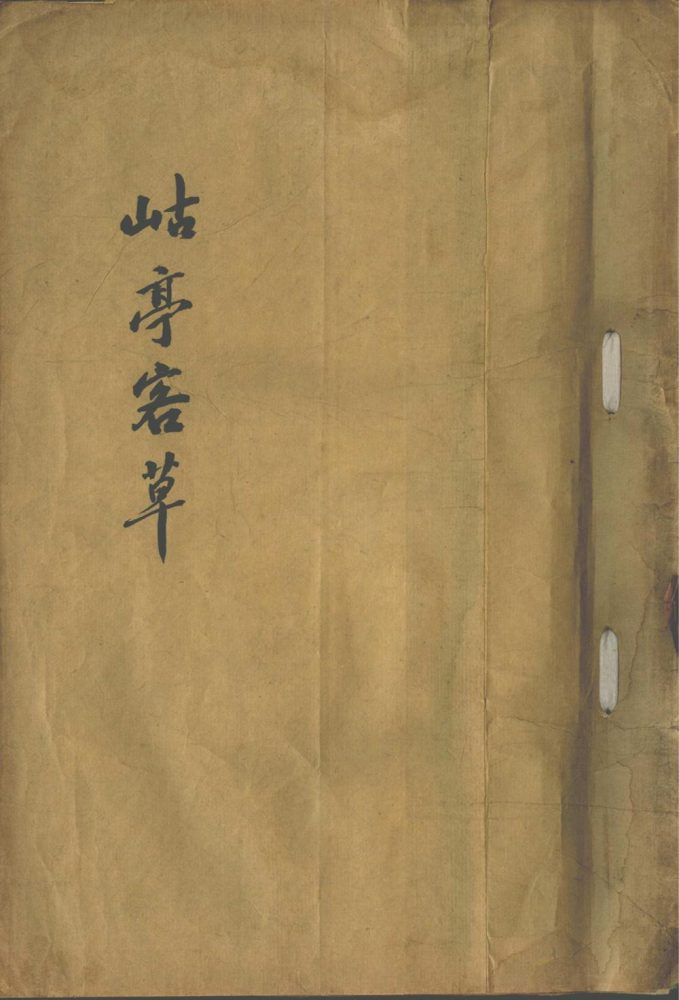 岵亭客草